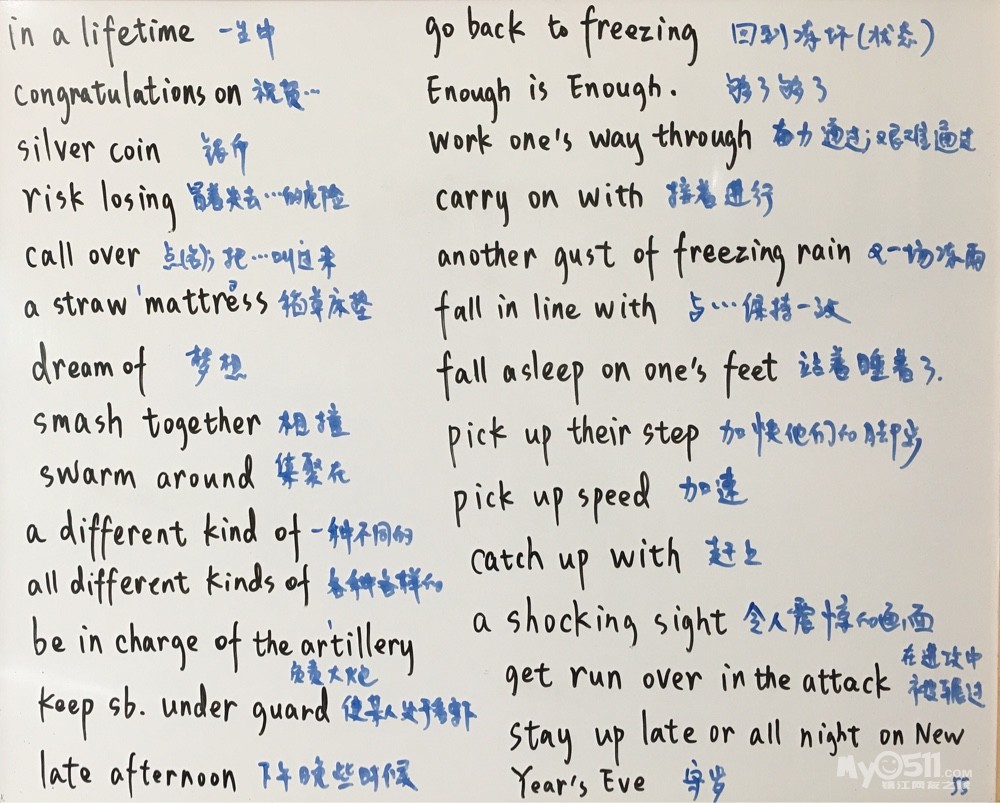 in a lifetime 一生中
congratulations on 祝贺…
silver coin 银币
risk losing 冒着失去…的危险
call over 点名；把…叫过来
a straw 'mattress 稻草床垫
dream of 梦想
smash together 相撞
swarm around 集聚在
a different kind of 一种不同的
all different kinds of 各种各样的
be in charge of the ar'tillery
负责大炮
keep sb. under guard 使某人处于看守下
late afternoon 下午晚些时候
go back to freezing 回到冻坏(状态)
Enough is Enough. 够了够了
work one's way through 奋力通过；艰难通过
carry on with 接着进行
another gust of freezing rain 又一场冻雨
fall in line with 与…保持一致
fall asleep on one's feet 站着睡着了.
pick up their step 加快他们的脚步
pick up speed 加速
catch up with 赶上
a shocking sight 令人震惊的画面
get run over in the attack 在进攻中
被辗过
stay up late or all night on New
Year's Eve 守岁
My0511.com
镇江网友之家
55